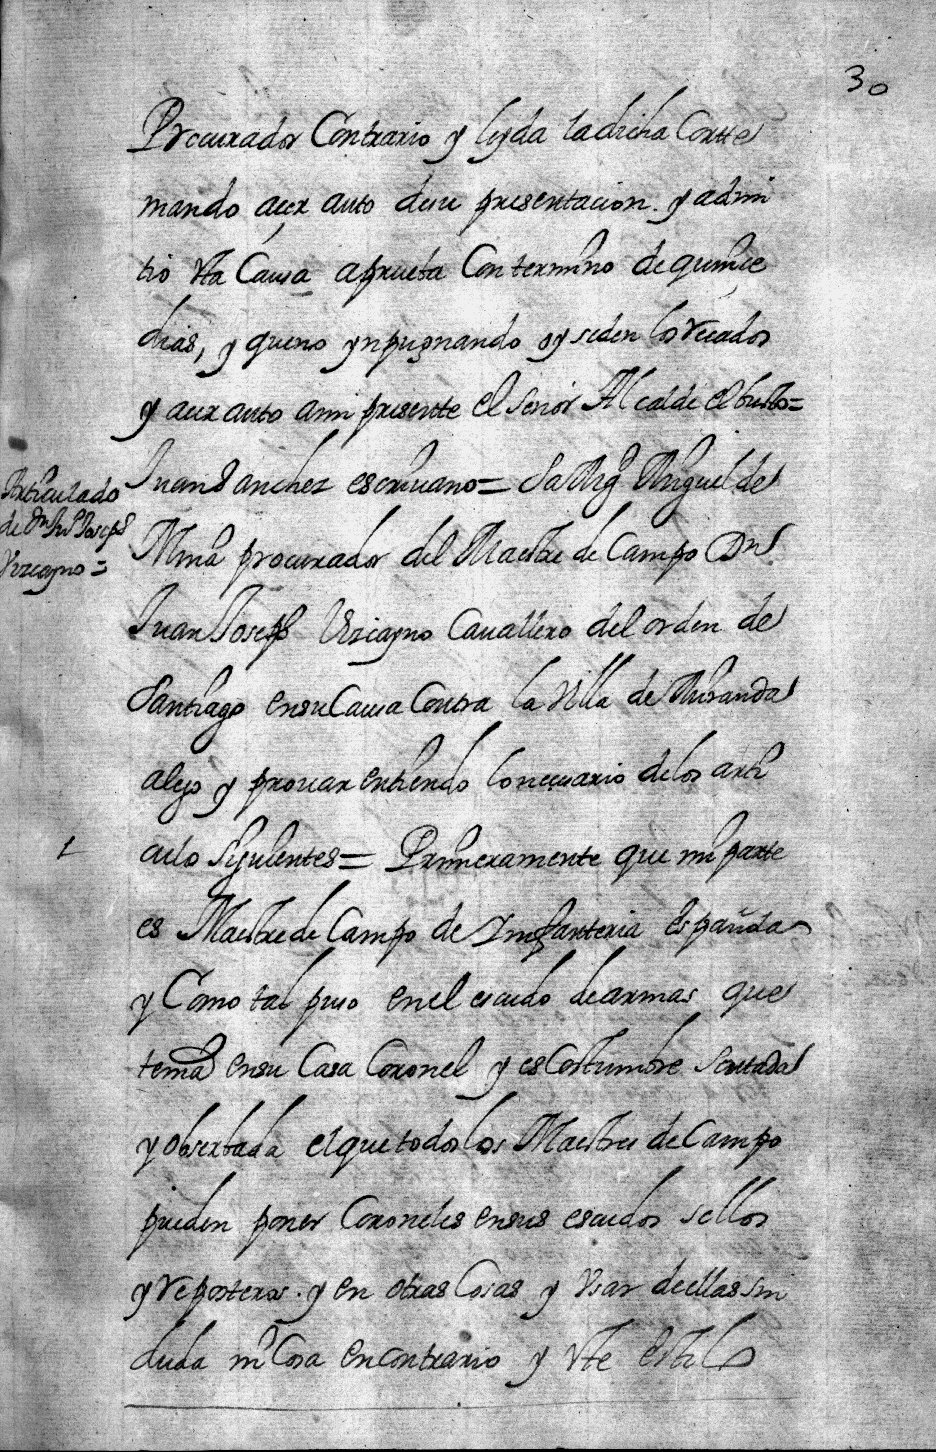 30
Procurador Contrario y leyda la dicha Cortte
mando acer auto de su presentacion . y admi
tio Vta Causa aprueba Con termino de quince
dias, y que no ynpugnando oy se den los recados
y acer auto ami presente el señor Alcalde el busto=
Juan Sanchez escriuano= Sa Mg Miguel de
Articulado
de Dn Ju Joseph
Vizcayno=
Mina procurador del Maestre de Campo Dn
Juan Joseph Vizcayno Cauallero del orden de
Santiago en su Causa Contra la Villa de Miranda
alego y prouar entiendo lo necesario de los arti
culo Siguientes= Primeramente que mi parte
1
es Maestre de Campo de Infanteria española
y Como tal puso en el escudo de armas que
tenia en su Casa Coronel y es Costumbre sentada
y obserbada el que todos los Maestres de Campo
pueden poner Coroneles en sus escudos sellos
y reposteros . y en otras Cosas y Vsar de ellas sin
duda ni Cosa en contrario y Vte estil